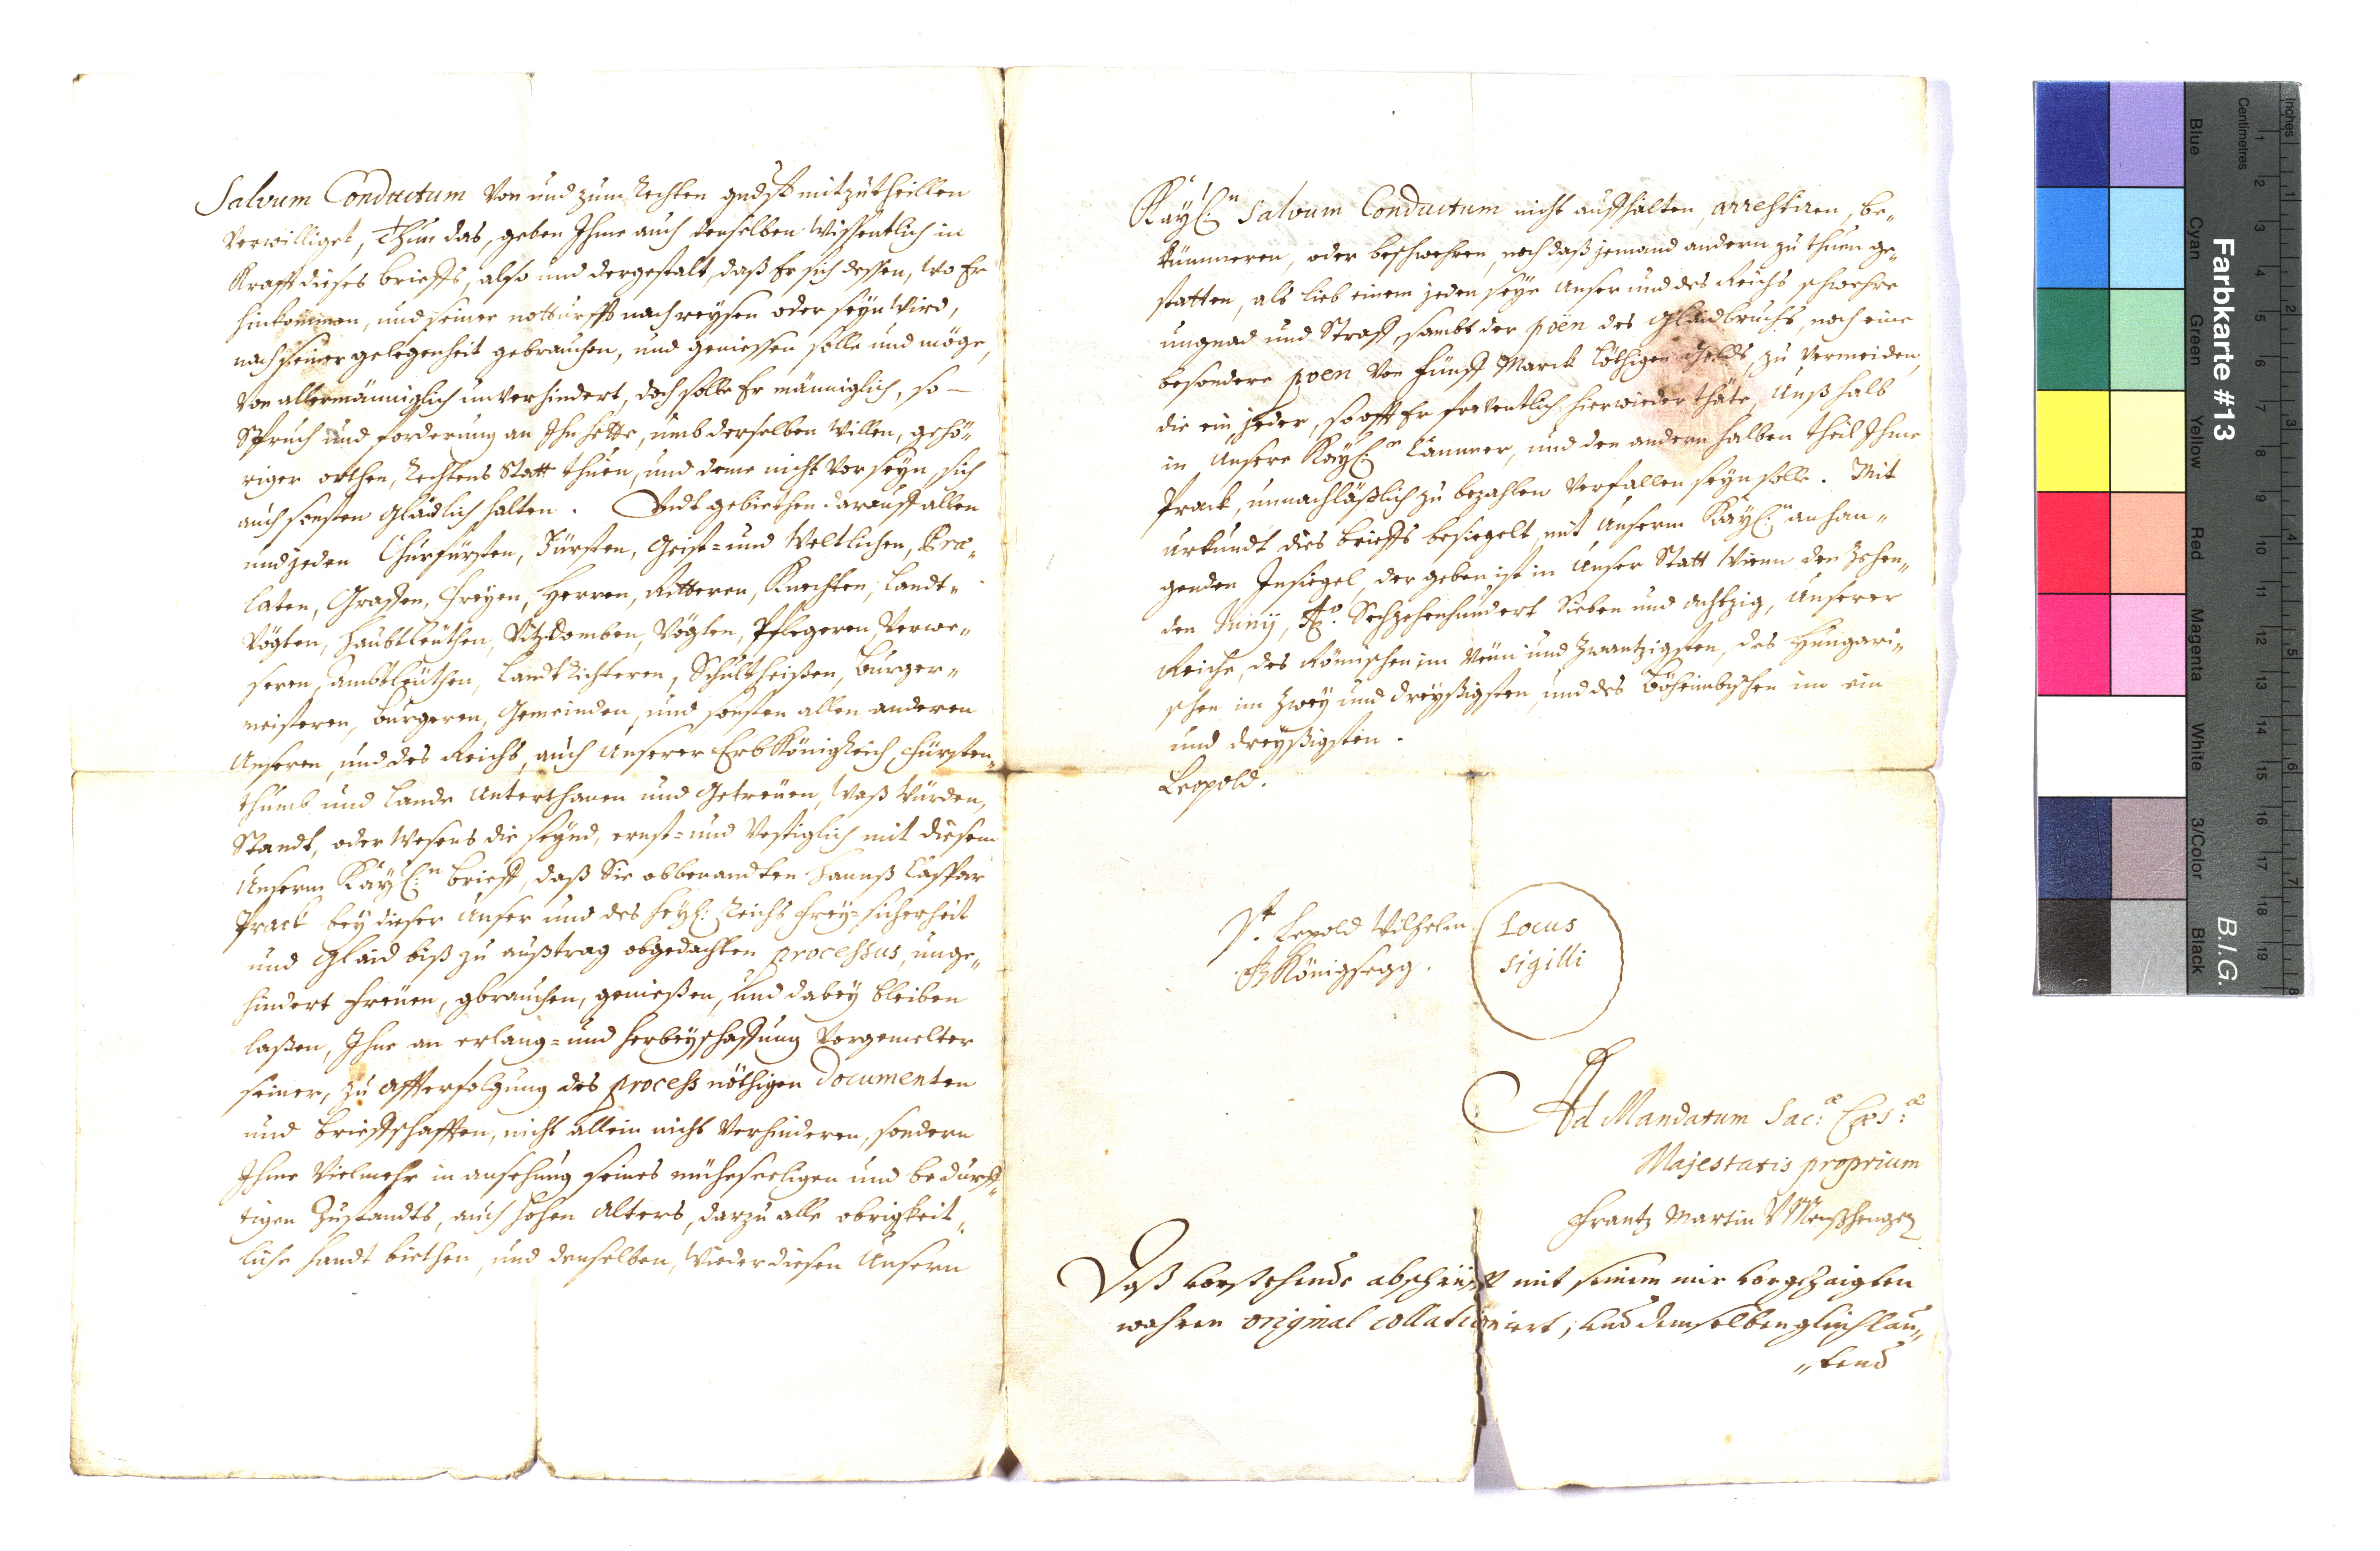 Salvum Conductum von und zum Rechten gndst mitzutheillen
verwilliget, Thun das, geben Ihme auch denselben wissentlich in
Krafft dieses brieffs, also und dergestalt, daß Er sich dessen, wo Er
hinkommen, und seiner notturfft nach reysen oder seyn wird,
nach seiner gelegenheit gebrauchen, und geniessen solle und möge,
von allermänniglich unverhindert, doch solle Er männiglich, so –
Spruch und forderung an Ihn hette, umb derselben willen, gehö„
riger orthen, Rechtens Statt thuen, und deme nicht vor seyn, sich
auch sonsten glaidlich halten. Undt gebiethen darauff allen
und jeden Churfürsten, Fürsten, Geist= und Weltlichen, Præ„
laten, Graffen, Freyen, Herren, Ritteren, Knechten, Landt„
vögten, Haubtleüthen, Vitzdomben, Vögten, Pflegeren, Verwe„
seren, Ambtleüthen, Landtrichteren, Schultheißen, Burger„
meisteren, Burgeren, Gemeinden, und sonsten allen anderen
Unseren, und des Reichs, auch Unserer ErbKönigReich, Fürsten„
thumb und Lande Unterthanen und Getreüen, waß würden,
Standt, oder wesens die seynd, ernst= und vestiglich mit diesem
Unserm Kayl:n brieff, daß Sie obbenandten Hannß Caspar
Prack bey dieser Unser und des heyl: Reichs Frey=sicherheit
und Glaid biß zu außtrag obgedachten processus, unge„
hindert freüen, gbrauchen, genießen, und dabey bleiben
laßen, Ihne an erlang= und herbeyschaffung vorgemelter
seiner, zu afferfolgung des process nöthigen Documenten
und brieffschafften, nicht allein nicht verhinderen, sondern
Ihme vielmehr in ansehung seines müheseeligen und bedurff„
tigen Zustandts, auch hohen Alters, darzu alle obrigkeit„
liche handt biethen, und denselben, wieder diesen Unsern
Kayl:n Salvum Conductum nicht auffhalten, arrestiren, be„
kümmeren, oder beschwehren, noch daß jemand andern zu thuen ge„
statten, als lieb einem jeden seye Unser und des Reichs schwehre
ungnad und Straff, sambt der pöen des Glaidbruchs, noch eine
besondere poen von Fünff Marck löthigen Goldts, zu vermeiden,
die ein jeder, so offt Er freventlich hierwieder thäte, Unß halb
in Unsere Kayl:e Cammer, und den andern halben theil Ihme
Prack, unnachläßlich zu bezahlen verfallen seyn solle. Mit
urkundt dies brieffs besiegelt mit Unserm Kayl:n anhan„
genden Insiegel, der geben ist in Unser Statt Wienn den Zehen„
den Juny, Ao. Sechzehenhundert Sieben und Achtzig, Unserer
Reiche, des Römischen im Neün und Zwantzigsten, des Hungari„
schen im Zwey und dreyßigsten, und des Böheimbischen im ein
und dreyßigsten.
Leopold.
Vt. Leopold Wilhelm
Königsegg.
Locus
sigilli
Ad Mandatum Sac:æ Cæs:æ
Majestatis proprium
Frantz Martin V Menßhengen
Daß vorstehende abschrifft mit seinem mir vorgezaigten
wahren original collationiert, und demselben gleichlau„
„tend
Farbkarte #13
B.I.G.
Inches
Centimetres
1 2 3 4 5 6 7 8 9 10 11 12 13 14 15 16 17 18 19
1 2 3 4 5 6 7 8
Blue
Cyan
Green
Yellow
Red
Magenta
White
3/Color
Black